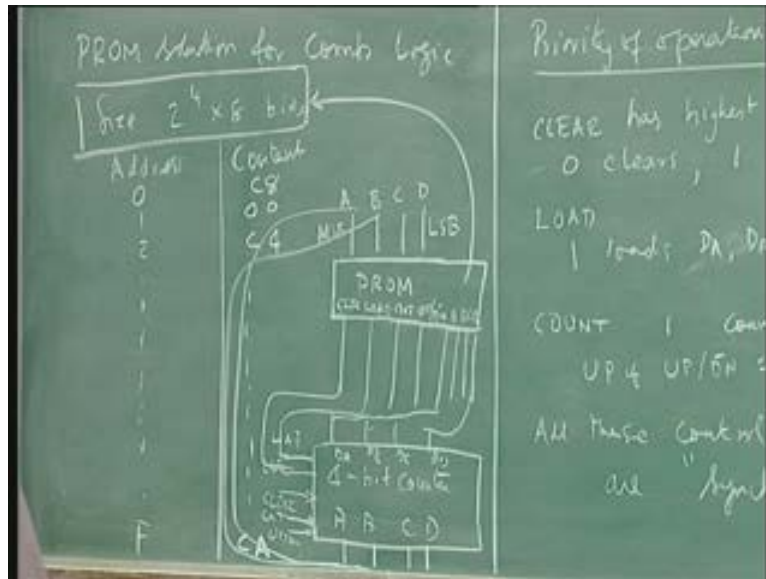 PROM Solution for Comb Logic
Size 2^4 × 8 bits
Address Content
0 C8
1 00
2 C4
F CA
A B C D
MSB LSB
PROM
CLR LOAD CNT
LOAD
DA DB DC DD
4-bit Counter
A B C D
Priority of operation
CLEAR has highest
0 clears, 1
LOAD
1 loads DA, DB
COUNT 1 coun
UP & UP/DN =
All these control
are "Sync